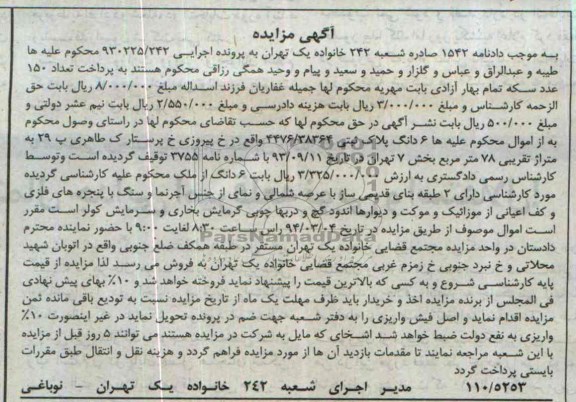 آگهی مزایده
به موجب دادنامه ۱۵۴۲ صادره شعبه ۲۴۲ خانواده یک تهران به پرونده اجرایی ۹۳۰۲۲۵/۲۴۲ محکوم علیه ها
طیبه و عبدالراق و عباس و گلزار و حمید و سعید و پیام و وحید همگی رزاقی محکوم هستند به پرداخت تعداد ۱۵۰
عدد سکه تمام بهار آزادی بابت مهریه محکوم لها جمیله غفاریان فرزند اسداله مبلغ ۸/۰۰۰/۰۰۰ ریال بابت حق
الزحمه کارشناس و مبلغ ۳/۰۰۰/۰۰۰ ریال بابت هزینه دادرسی و مبلغ ۲/۵۵۰/۰۰۰ ریال بابت نیم عشر دولتی و
مبلغ ۵۰۰/۰۰۰ ریال بابت نشر آگهی در حق محکوم لها که حسب تقاضای محکوم لها در راستای وصول محکوم
به از اموال محکوم علیه ها ۶ دانگ پلاک ثبتی ۴۴۷۶/۳۸۳۶۴ واقع در خ پیروزی خ پرستار ک طاهری پ ۲۹ به
متراژ تقریبی ۷۸ متر مربع بخش ۷ تهران در تاریخ ۹۳/۰۹/۱۱ با شماره نامه ۳۷۵۵ توقیف گردیده است و توسط
کارشناس رسمی دادگستری به ارزش ۳/۳۲۵/۰۰۰/۰۰۰ ریال بابت ۶ دانگ از ملک محکوم علیه کارشناسی گردیده
مورد کارشناسی دارای ۲ طبقه بنای قدیمی ساز با عرصه شمالی و نمای از جنس آجرنما و سنگ با پنجره های فلزی
و کف اعیانی از موزائیک و موکت و دیوارها اندود گچ و دربها چوبی گرمایش بخاری و سرمایش کولر است مقرر
است اموال موصوف از طریق مزایده در تاریخ ۹۴/۰۳/۰۴ راس ساعت ۸:۳۰ لغایت ۹:۰۰ با حضور نماینده محترم
دادستان در واحد مزایده مجتمع قضایی خانواده یک تهران مستقر در طبقه همکف ضلع جنوبی واقع در اتوبان شهید
محلاتی و خ نبرد جنوبی خ زمزم غربی مجتمع قضایی خانواده یک تهران به فروش می رسد لذا مزایده از قیمت
پایه کارشناسی شروع و به کسی که بالاترین قیمت را پیشنهاد نماید فروخته خواهد شد و ۱۰٪ بهای پیش نهادی
فی المجلس از برنده مزایده اخذ و خریدار باید ظرف مهلت یک ماه از تاریخ مزایده نسبت به تودیع باقی مانده ثمن
مزایده اقدام نماید و اصل فیش واریزی را به دفتر شعبه جهت ضم در پرونده تحویل نماید در غیر اینصورت ۱۰٪
واریزی به نفع دولت ضبط خواهد شد اشخای که مایل به شرکت در مزایده هستند می توانند ۵ روز قبل از مزایده
با این شعبه مراجعه نمایند تا مقدمات بازدید آن ها از مورد مزایده فراهم گردد و هزینه نقل و انتقال طبق مقررات
بایستی پرداخت گردد
۱۱۰/۵۲۵۳ مدیر اجرای شعبه ۲۴۲ خانواده یک تهران - نوباغی